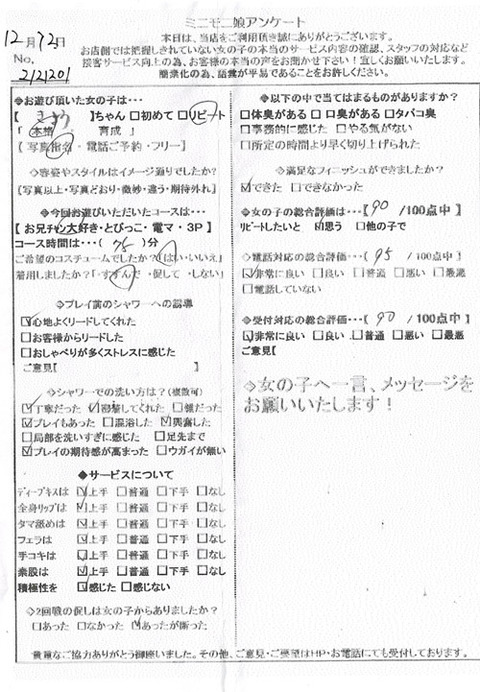 ミニモニ娘アンケート
12月12日
No.
2121201
本日は、当店をご利用頂き誠にありがとうございます。
お店側では把握しきれていない女の子の本当のサービス内容の確認、スタッフの対応など
接客サービス向上の為、お客様の本当の声をお聞かせ下さい！宜しくお願いいたします。
簡素化の為、語彙が平易であることをお許しください。
◆お遊び頂いた女の子は…
【 】ちゃん □初めて □リピート
「本指 育成 」
【 写真指名・電話ご予約・フリー】
◇容姿やスタイルはイメージ通りでしたか？
【写真以上・写真どおり・微妙・違う・期待外れ】
◆今回お遊びいただいたコースは…
【お兄チャン大好き・とびっこ・電マ・3P】
コース時間は…( 75 )分
ご希望のコスチュームでしたか？(はい・いいえ)
着用しましたか？(すすんで・促して・しない)
◆プレイ前のシャワーへの誘導
☑心地よくリードしてくれた
□お客様からリードした
□おしゃべりが多くストレスに感じた
ご意見【 】
◇シャワーでの洗い方は？(複数可)
☑丁寧だった ☑密着してくれた □雑だった
☑プレイもあった □混浴した ☑興奮した
□局部を洗いすぎに感じた □足先まで
☑プレイの期待感が高まった □ウガイが無い
◆サービスについて
ディープキスは ☑上手 □普通 □下手 □なし
全身リップは ☑上手 □普通 □下手 □なし
タマ舐めは ☑上手 □普通 □下手 □なし
フェラは ☑上手 □普通 □下手 □なし
手コキは ☑上手 □普通 □下手 □なし
素股は ☑上手 □普通 □下手 □なし
積極性を ☑感じた □感じない
◇2回戦の促しは女の子からありましたか？
□あった □なかった ☑あったが断った
◆以下の中で当てはまるものがありますか？
□体臭がある □口臭がある □タバコ臭
□事務的に感じた □やる気がない
□所定の時間より早く切り上げられた
◇満足なフィニッシュができましたか？
☑できた □できなかった
◆女の子の総合評価は…【 90 /100点中】
リピートしたいと ☑思う □他の子で
◇電話対応の総合評価…( 95 /100点中)
☑非常に良い □良い □普通 □悪い □最悪
□電話していない
◆受付対応の総合評価…( 90 /100点中)
☑非常に良い □良い □普通 □悪い □最悪
ご意見【 】
◇女の子へ一言、メッセージを
お願いいたします！
貴重なご協力ありがとう御座いました。その他、ご意見・ご要望はHP・お電話にても受付しております。